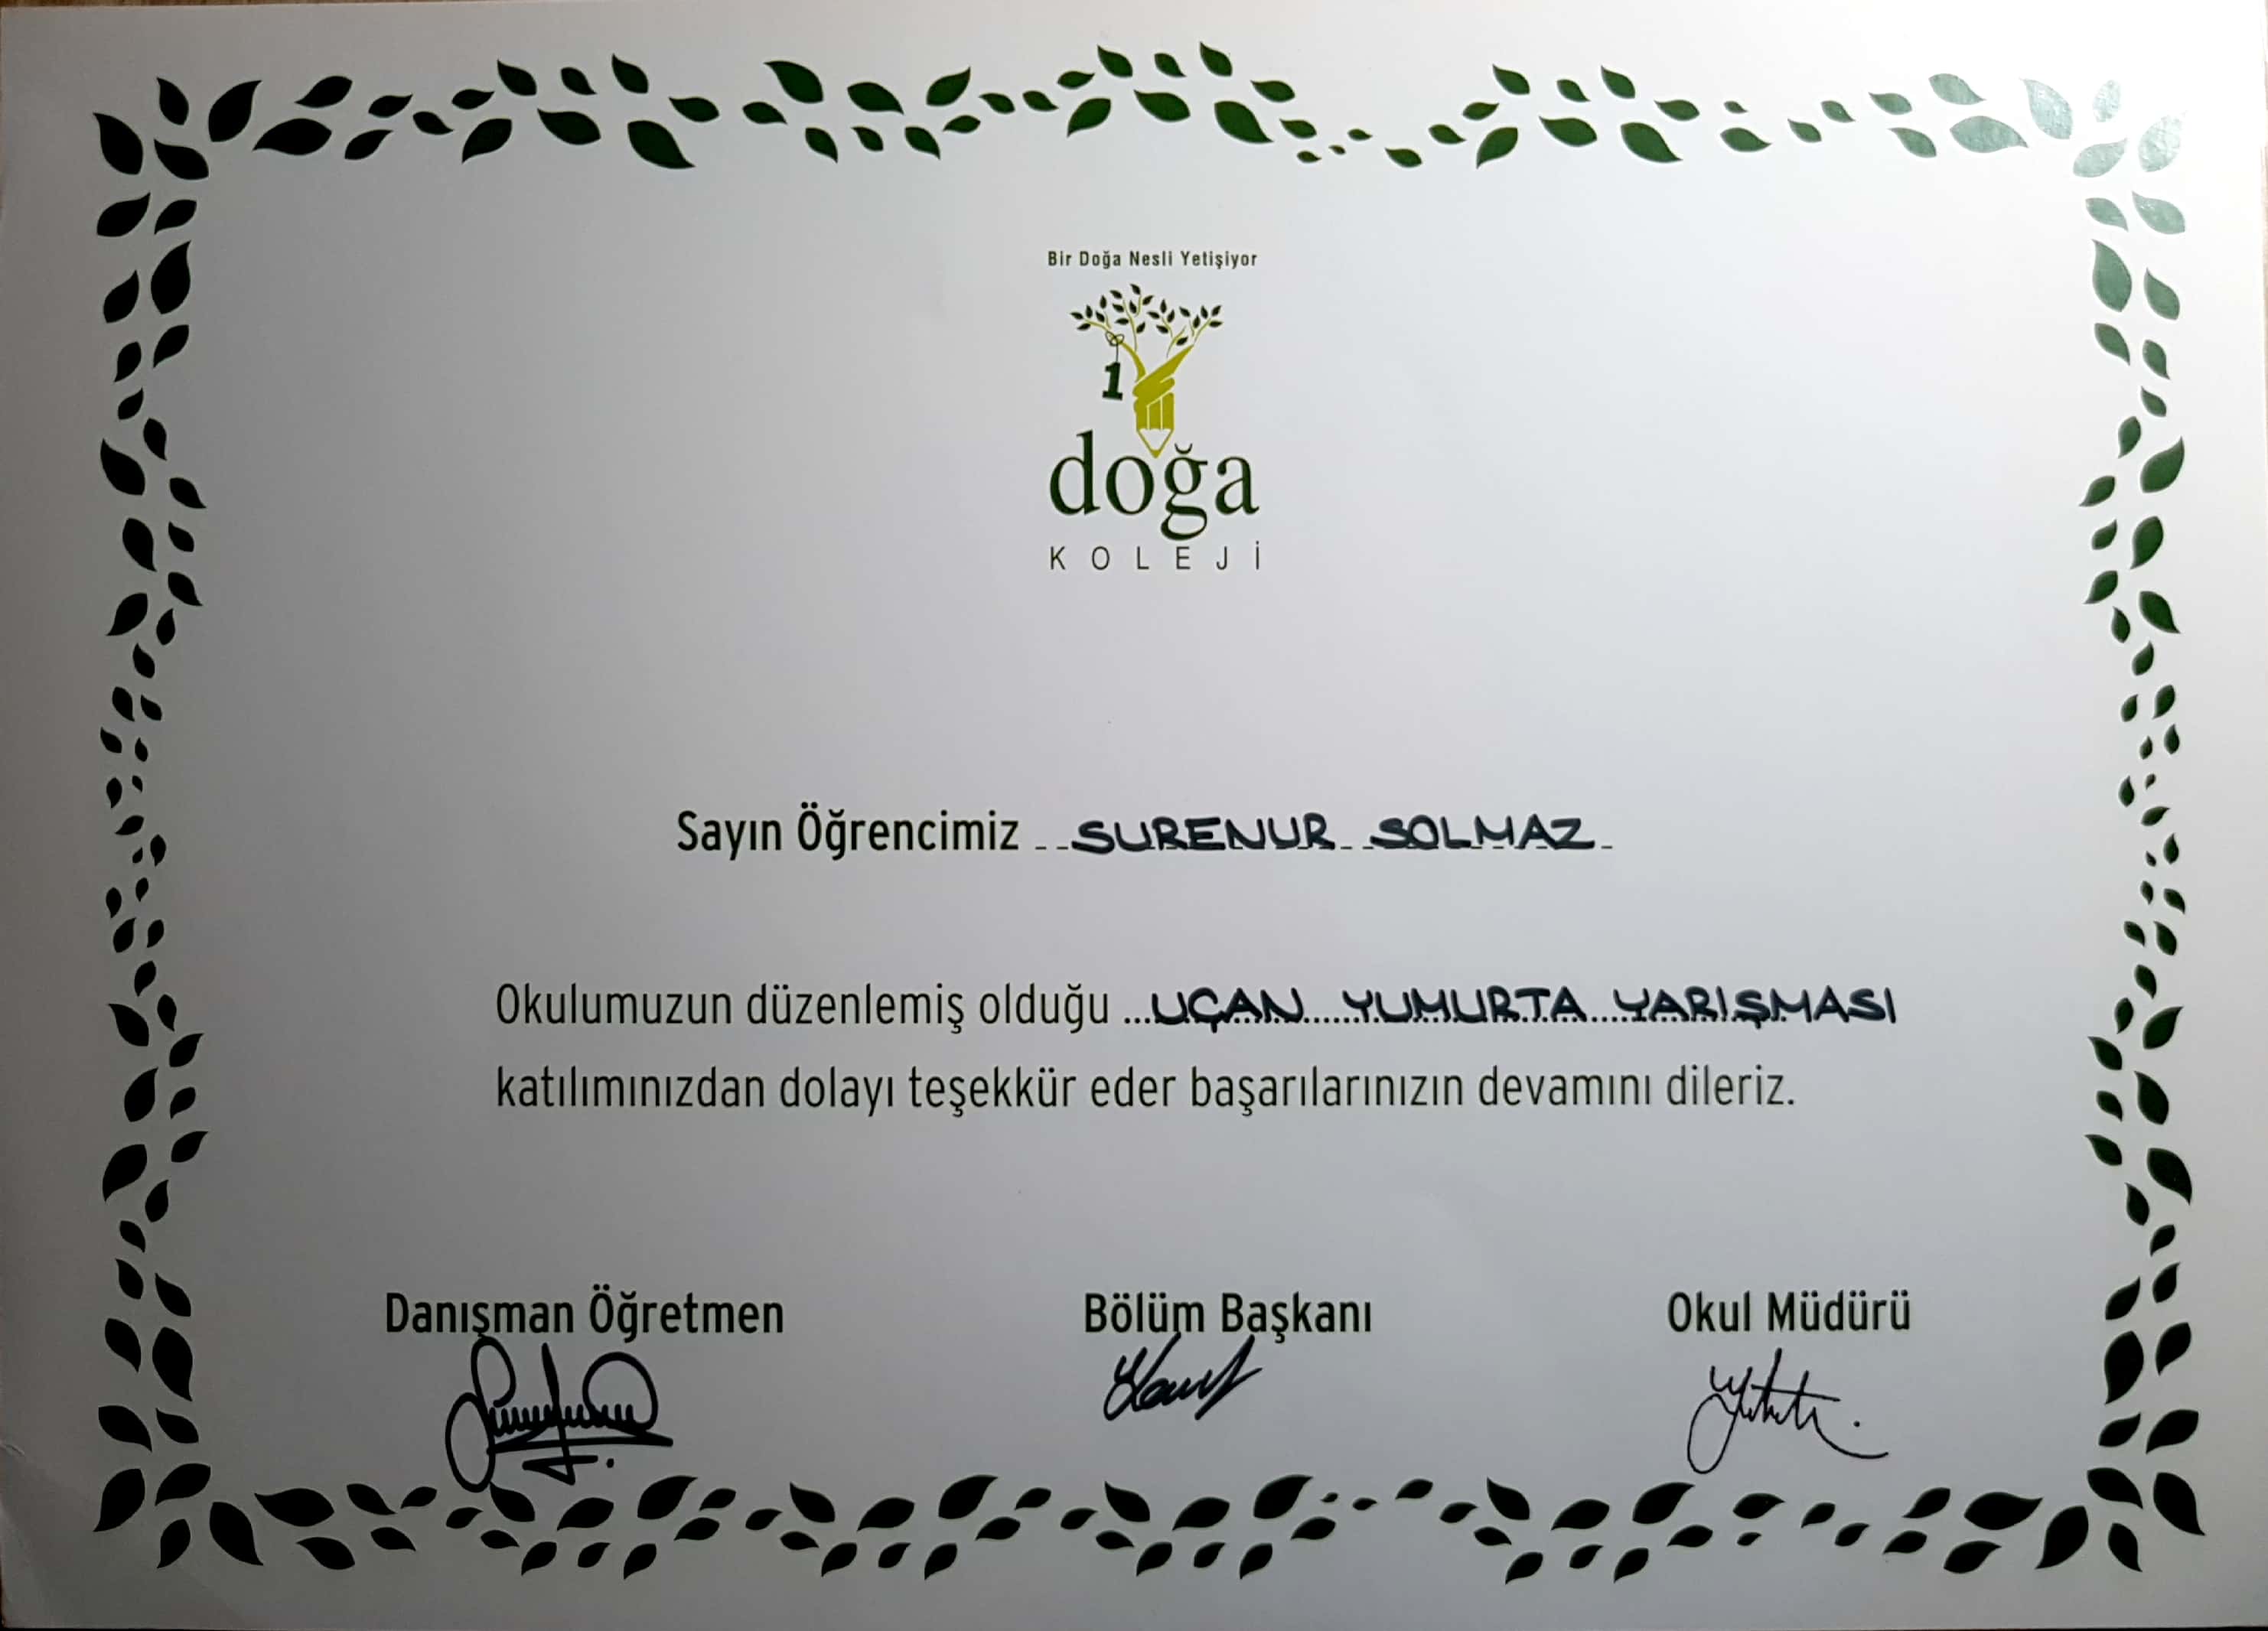 Bir Doğa Nesli Yetişiyor
1
doğa
KOLEJİ
Sayın Öğrencimiz SURENUR SOLMAZ
Okulumuzun düzenlemiş olduğu UÇAN YUMURTA YARIŞMASI
katılımınızdan dolayı teşekkür eder başarılarınızın devamını dileriz.
Danışman Öğretmen Bölüm Başkanı Okul Müdürü